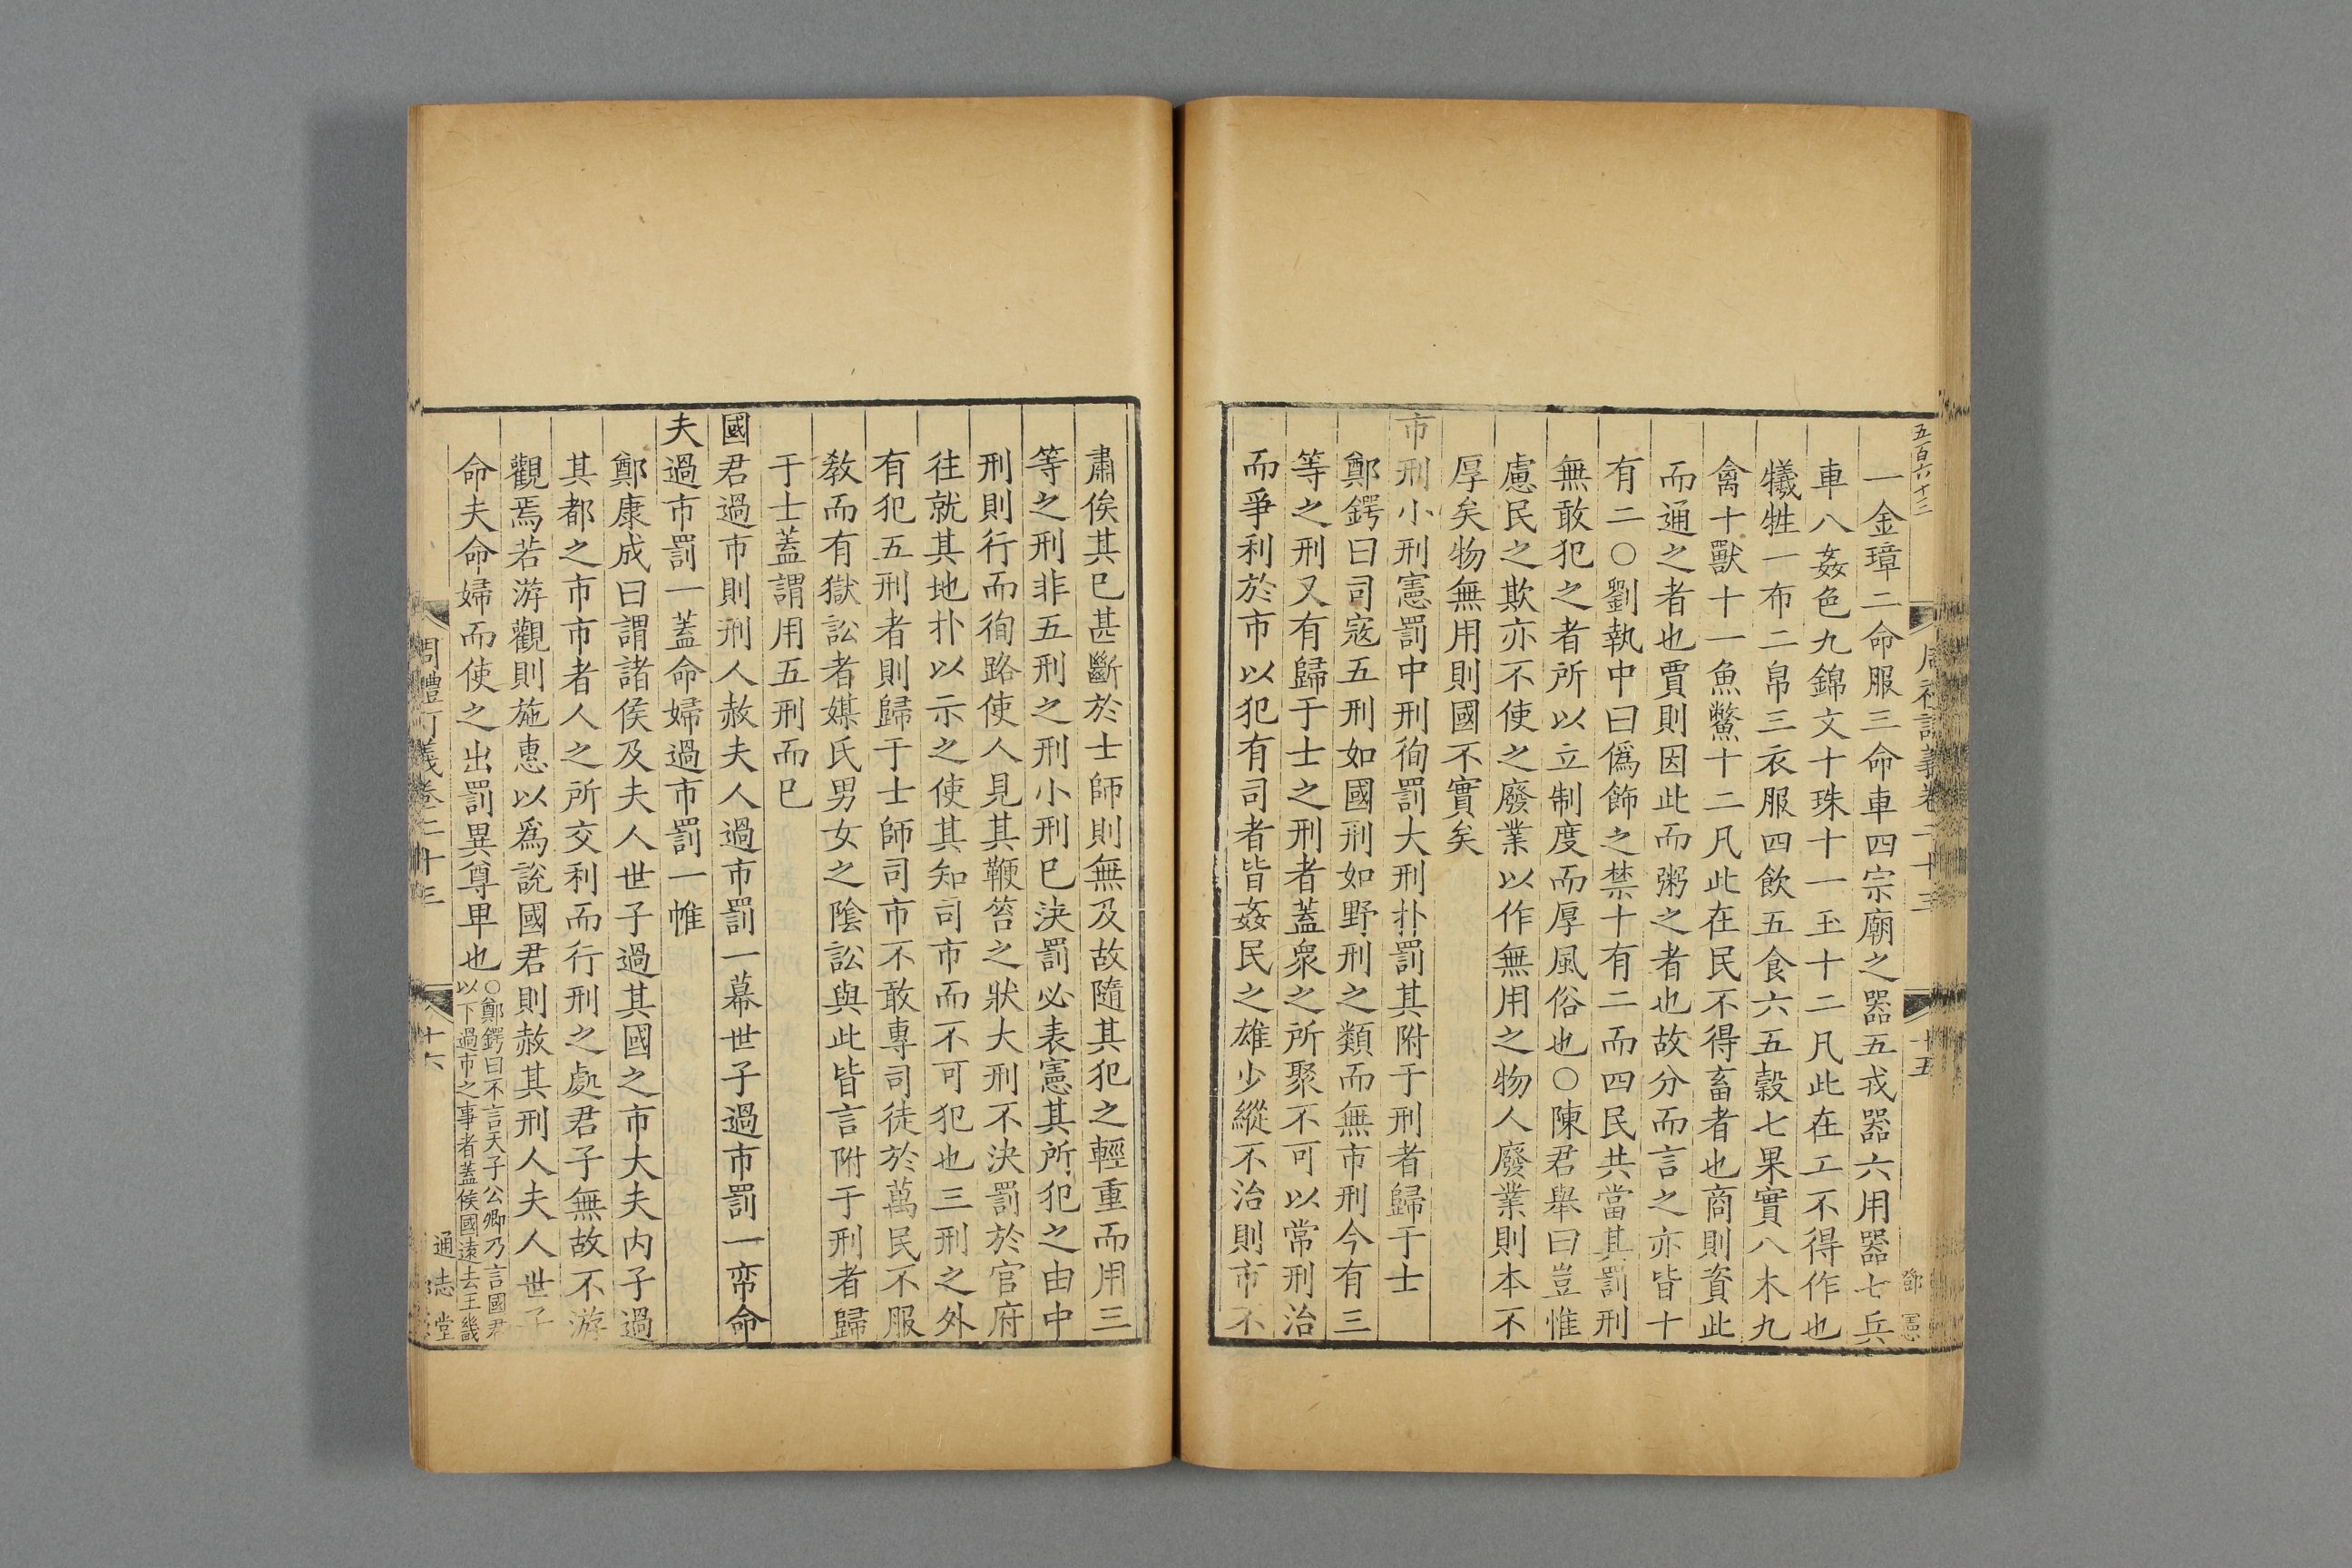 五百六十三
周禮訂義卷二十三
十五
鄧憲
一金璋二命服三命車四宗廟之器五戎器六用器七兵
車八姦色九錦文十珠十一玉十二凡此在工不得作也
犧牲一布二帛三衣服四飲五食六五穀七果實八木九
禽十獸十一魚鱉十二凡此在民不得畜者也商則資此
而通之者也賈則因此而粥之者也故分而言之亦皆十
有二○劉執中曰僞飾之禁十有二而四民共當其罰刑
無敢犯之者所以立制度而厚風俗也○陳君舉曰豈惟
慮民之欺亦不使之廢業以作無用之物人廢業則本不
厚矣物無用則國不實矣
市刑小刑憲罰中刑徇罰大刑扑罰其附于刑者歸于士
鄭鍔曰司寇五刑如國刑如野刑之類而無市刑今有三
等之刑又有歸于士之刑者蓋衆之所聚不可以常刑治
而爭利於市以犯有司者皆姦民之雄少縱不治則市不
肅俟其已甚斷於士師則無及故隨其犯之輕重而用三
等之刑非五刑之刑小刑已決罰必表憲其所犯之由中
刑則行而徇路使人見其鞭笞之狀大刑不決罰於官府
往就其地扑以示之使其知司市而不可犯也三刑之外
有犯五刑者則歸于士師司市不敢專司徒於萬民不服
教而有獄訟者媒氏男女之陰訟與此皆言附于刑者歸
于士蓋謂用五刑而已
國君過市則刑人赦夫人過市罰一幕世子過市罰一帟命
夫過市罰一蓋命婦過市罰一帷
鄭康成曰謂諸侯及夫人世子過其國之市大夫内子過
其都之市市者人之所交利而行刑之處君子無故不游
觀焉若游觀則施惠以爲說國君則赦其刑人夫人世子
命夫命婦而使之出罰異尊卑也○鄭鍔曰不言天子公卿乃言國君
以下過市之事者蓋侯國遠去王畿
周禮訂義卷二十三
十六
通志堂